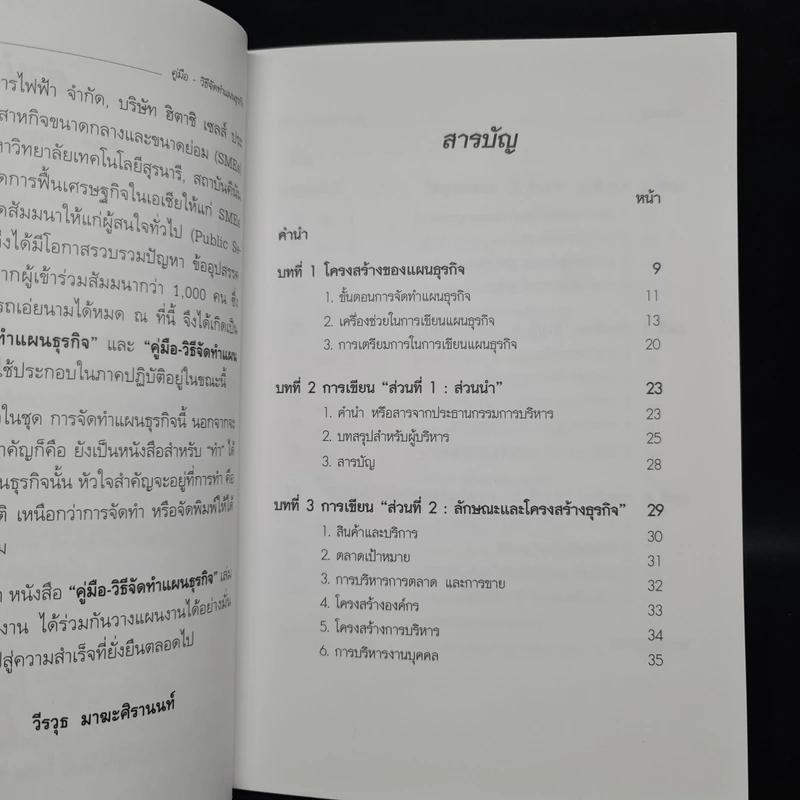 คู่มือ - วิธีจัดทำแผนธุรกิจ
ารไฟฟ้า จำกัด, บริษัท ฮิตาชิ เซลส์ ประ
สาหกิจขนาดกลางและขนาดย่อม (SMEs)
หาวิทยาลัยเทคโนโลยีสุรนารี, สถาบันคีนัน
ดการฟื้นเศรษฐกิจในเอเชียให้แก่ SMEs
ดสัมมนาให้แก่ผู้สนใจทั่วไป (Public Se-
ึงได้มีโอกาสรวบรวมปัญหา ข้ออุปสรรค
ากผู้เข้าร่วมสัมมนากว่า 1,000 คน ซึ่ง
รถเอ่ยนามได้หมด ณ ที่นี้ จึงได้เกิดเป็น
ทำแผนธุรกิจ” และ “คู่มือ-วิธีจัดทำแผน
ใช้ประกอบในภาคปฏิบัติอยู่ในขณะนี้
อในชุด การจัดทำแผนธุรกิจนี้ นอกจากจะ
าคัญก็คือ ยังเป็นหนังสือสำหรับ “ทำ” ได้
นธุรกิจนั้น หัวใจสำคัญจะอยู่ที่การทำ คือ
ติ เหนือกว่าการจัดทำ หรือจัดพิมพ์ให้ได้
ม
า หนังสือ “คู่มือ-วิธีจัดทำแผนธุรกิจ” เล่ม
งาน ได้ร่วมกันวางแผนงานได้อย่างมั่น
ปสู่ความสำเร็จที่ยั่งยืนตลอดไป
วีรวุธ มาฆะศิรานนท์
สารบัญ
หน้า
คำนำ
บทที่ 1 โครงสร้างของแผนธุรกิจ 9
1. ขั้นตอนการจัดทำแผนธุรกิจ 11
2. เครื่องช่วยในการเขียนแผนธุรกิจ 13
3. การเตรียมการในการเขียนแผนธุรกิจ 20
บทที่ 2 การเขียน “ส่วนที่ 1 : ส่วนนำ” 23
1. คำนำ หรือสารจากประธานกรรมการบริหาร 23
2. บทสรุปสำหรับผู้บริหาร 25
3. สารบัญ 28
บทที่ 3 การเขียน “ส่วนที่ 2 : ลักษณะและโครงสร้างธุรกิจ” 29
1. สินค้าและบริการ 30
2. ตลาดเป้าหมาย 31
3. การบริหารการตลาด และการขาย 32
4. โครงสร้างองค์กร 33
5. โครงสร้างการบริหาร 34
6. การบริหารงานบุคคล 35